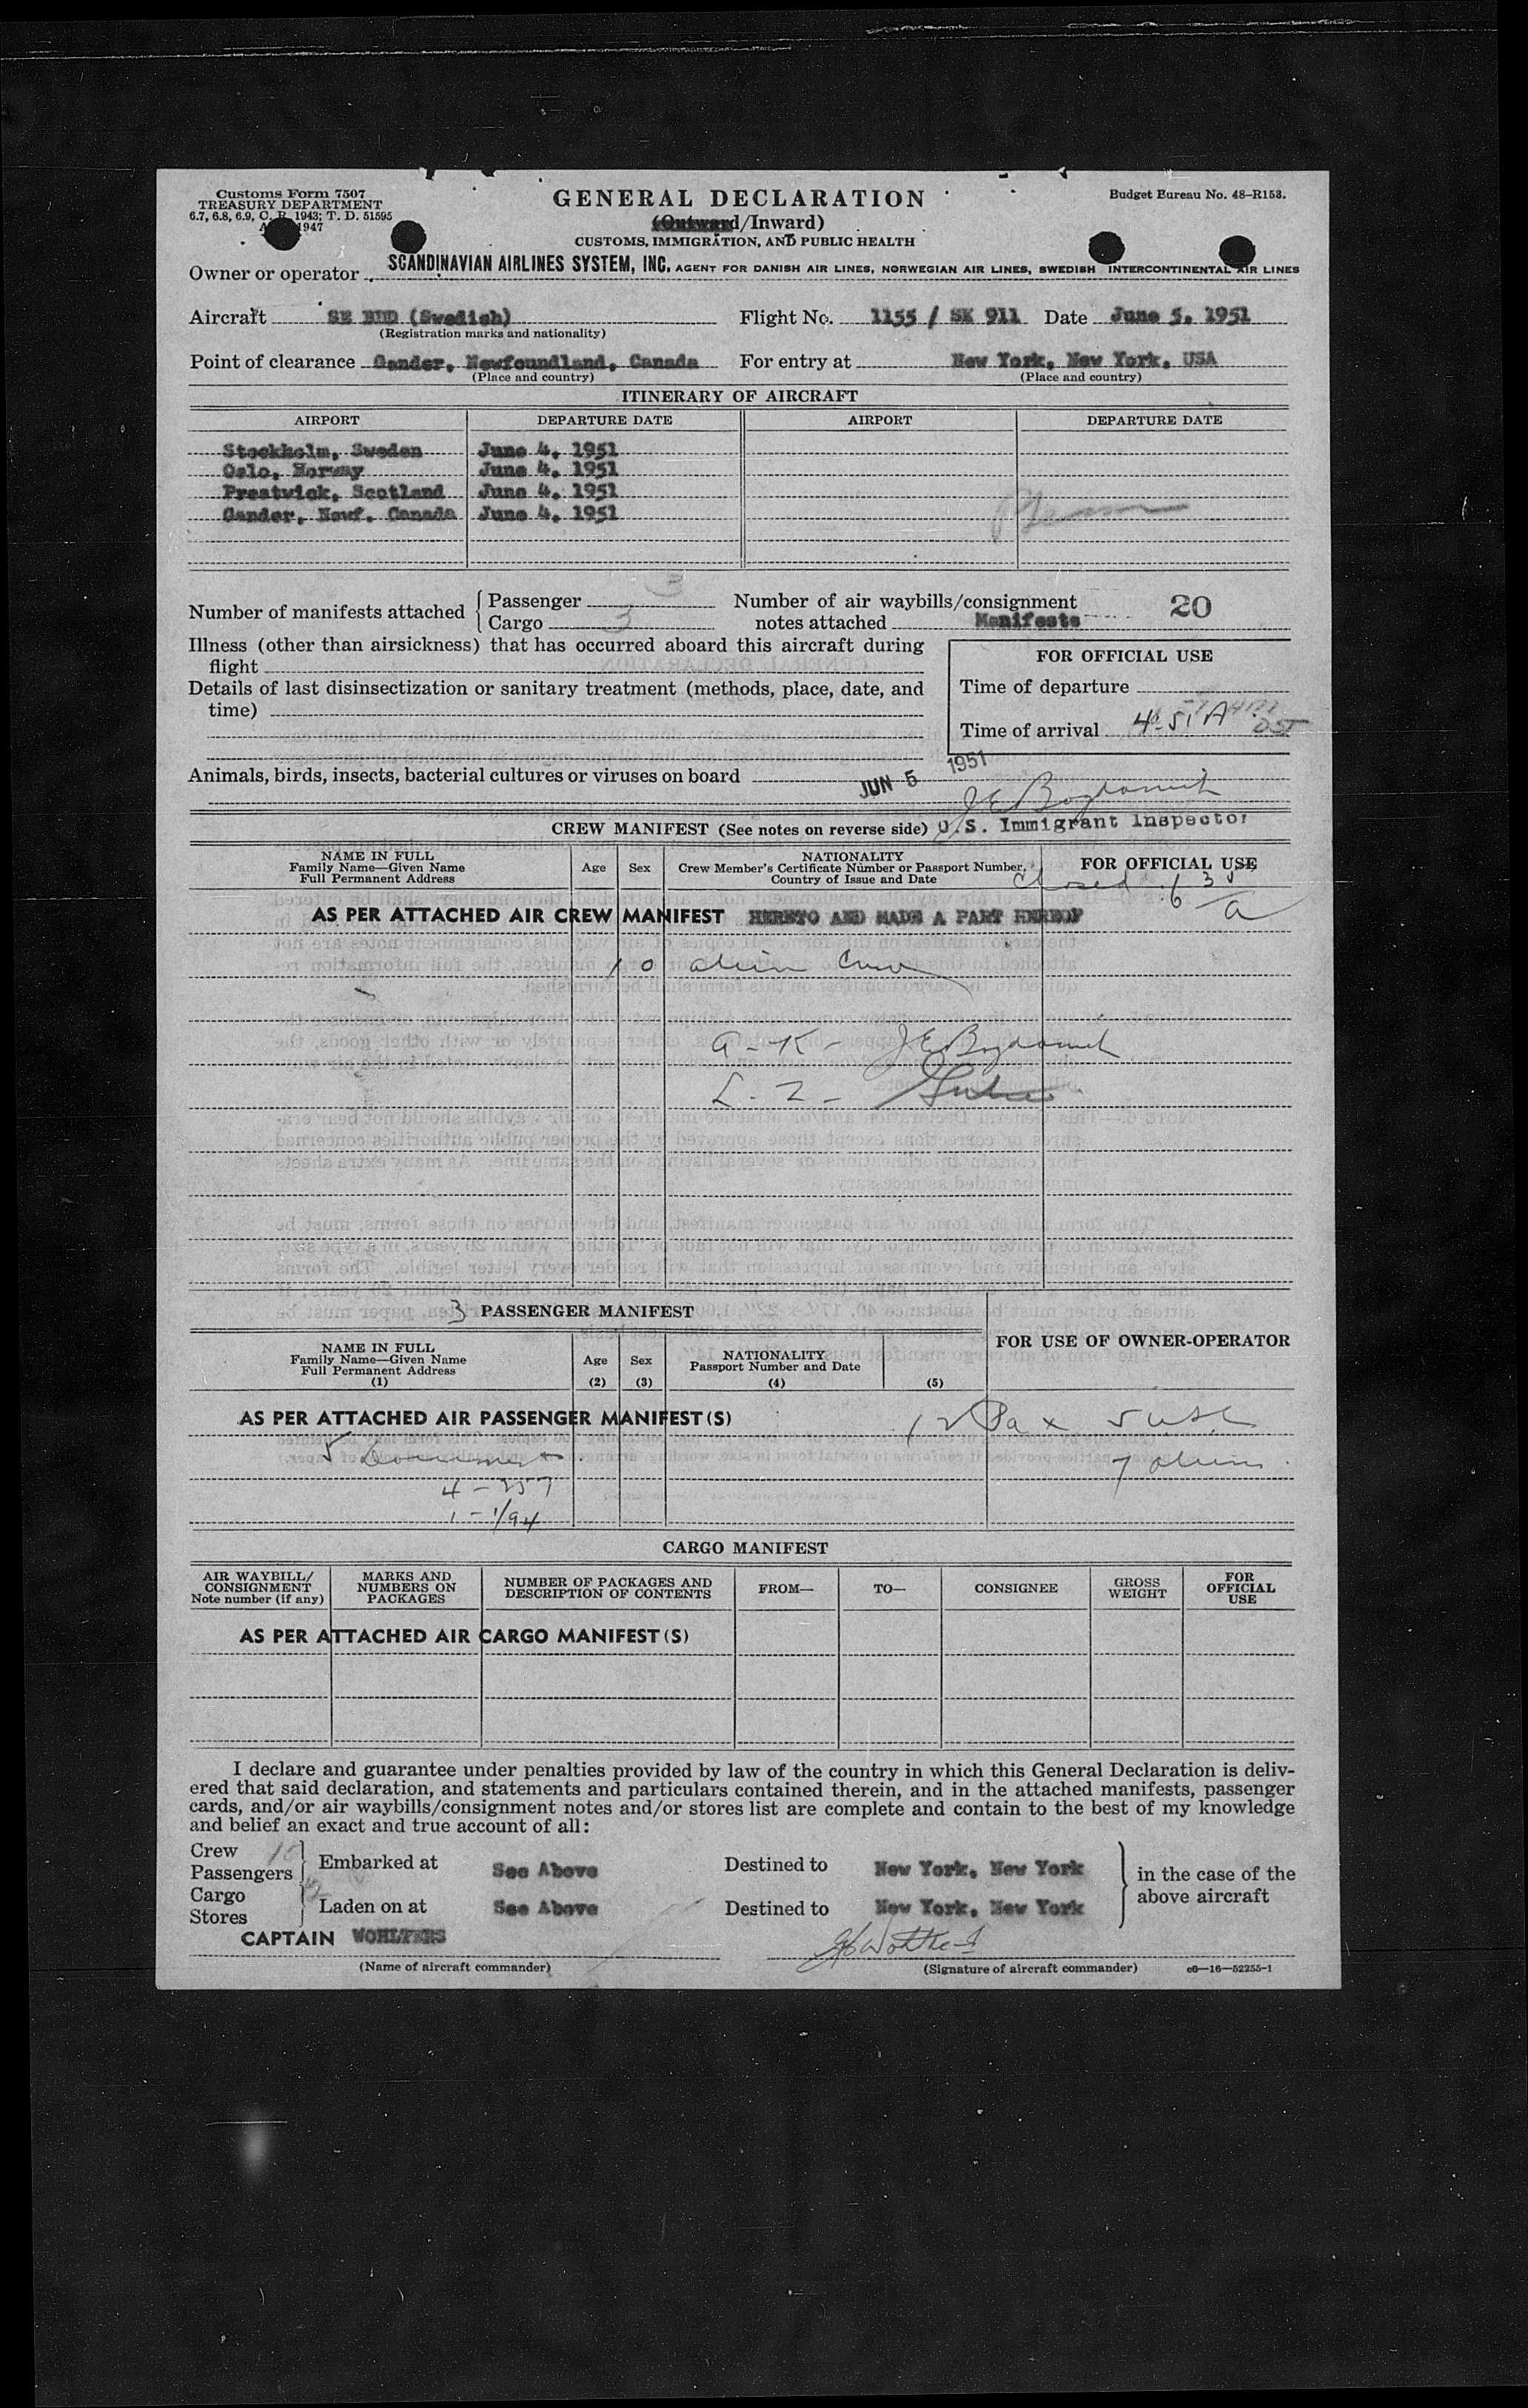 Customs Form 7507
TREASURY DEPARTMENT
6.7, 6.8, 6.9, C. R. 1943; T. D. 51595
1947
GENERAL DECLARATION
(Outward/Inward)
CUSTOMS, IMMIGRATION, AND PUBLIC HEALTH
Budget Bureau No. 48–R153.
Owner or operator SCANDINAVIAN AIRLINES SYSTEM, INC, AGENT FOR DANISH AIR LINES, NORWEGIAN AIR LINES, SWEDISH INTERCONTINENTAL AIR LINES
Aircraft SE BUD (Swedish) Flight No. 1155 / SK 911 Date June 5, 1951
(Registration marks and nationality)
Point of clearance Gander, Newfoundland, Canada For entry at New York, New York, USA
(Place and country) (Place and country)
ITINERARY OF AIRCRAFT
AIRPORT DEPARTURE DATE AIRPORT DEPARTURE DATE
Stockholm, Sweden June 4, 1951
Oslo, Norway June 4, 1951
Prestwick, Scotland June 4, 1951
Gander, Newf. Canada June 4, 1951
Number of manifests attached { Passenger 3
Cargo 3
Number of air waybills/consignment
notes attached Manifests 20
Illness (other than airsickness) that has occurred aboard this aircraft during
flight
Details of last disinsectization or sanitary treatment (methods, place, date, and
time)
FOR OFFICIAL USE
Time of departure
Time of arrival 4 51 A
DST
Animals, birds, insects, bacterial cultures or viruses on board
JUN 5 1951
U.S. Immigrant Inspector
CREW MANIFEST (See notes on reverse side)
NAME IN FULL
Family Name—Given Name
Full Permanent Address
Age Sex
NATIONALITY
Crew Member's Certificate Number or Passport Number,
Country of Issue and Date
FOR OFFICIAL USE
Closed 6 35
6 a
AS PER ATTACHED AIR CREW MANIFEST HERETO AND MADE A PART HEREOF
10 alien Crew
a - K -
L - Z -
3 PASSENGER MANIFEST
NAME IN FULL
Family Name—Given Name
Full Permanent Address
(1)
Age
(2)
Sex
(3)
NATIONALITY
Passport Number and Date
(4)
(5)
FOR USE OF OWNER-OPERATOR
AS PER ATTACHED AIR PASSENGER MANIFEST(S)
12 Pax 5 USC
5 Documents
7 aliens
4 - 257
1 - 1/94
CARGO MANIFEST
AIR WAYBILL/
CONSIGNMENT
Note number (if any)
MARKS AND
NUMBERS ON
PACKAGES
NUMBER OF PACKAGES AND
DESCRIPTION OF CONTENTS
FROM—
TO—
CONSIGNEE
GROSS
WEIGHT
FOR
OFFICIAL
USE
AS PER ATTACHED AIR CARGO MANIFEST(S)
I declare and guarantee under penalties provided by law of the country in which this General Declaration is deliv-
ered that said declaration, and statements and particulars contained therein, and in the attached manifests, passenger
cards, and/or air waybills/consignment notes and/or stores list are complete and contain to the best of my knowledge
and belief an exact and true account of all:
Crew 10
Passengers 12
Embarked at See Above Destined to New York, New York
in the case of the
above aircraft
Cargo
Stores
Laden on at See Above Destined to New York, New York
CAPTAIN WOHLTERS
(Name of aircraft commander) (Signature of aircraft commander) c6—16—52255-1